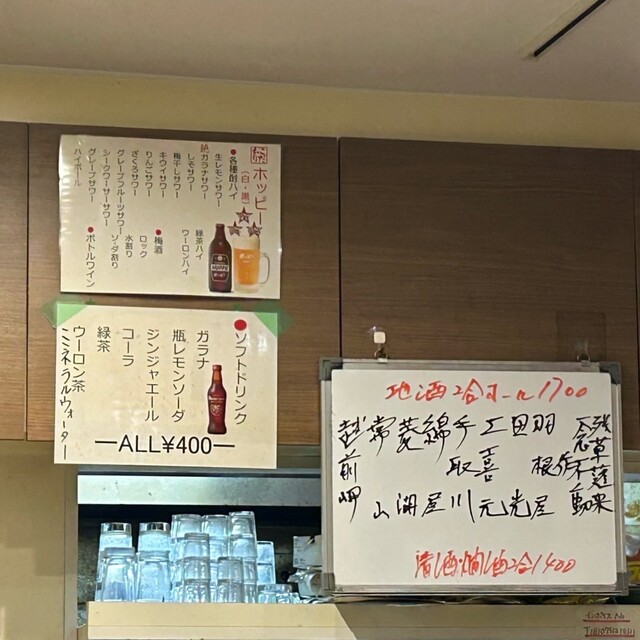 ホッピー
(白・黒)
●各種酎ハイ
生レモンサワー
ガラナサワー
しそサワー
梅干しサワー
キウイサワー
りんごサワー
ざくろサワー
グレープフルーツサワー
シークワーサーサワー
グレープサワー
ハイボール
緑茶ハイ
ウーロンハイ
●梅酒
ロック
水割り
ソーダ割り
●ボトルワイン
●ソフトドリンク
ガラナ
瓶レモンソーダ
ジンジャエール
コーラ
緑茶
ウーロン茶
ミネラルウォーター
ALL¥400
地酒2合オール1700
羽根屋
田光
手取川
綿屋
菱湖
常山
越前岬
清酒・燗酒2合1400